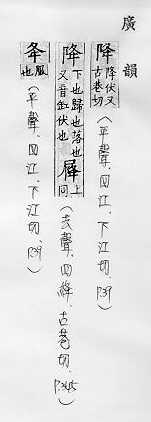 廣韻
降 降伏又古巷切 (平聲．四江．下江切．P.39)
降 下也歸也落也又音缸伏也 屖 上同 (去聲．四絳．古巷切．P.345)
夅 服也 (平聲．四江．下江切．P.39)